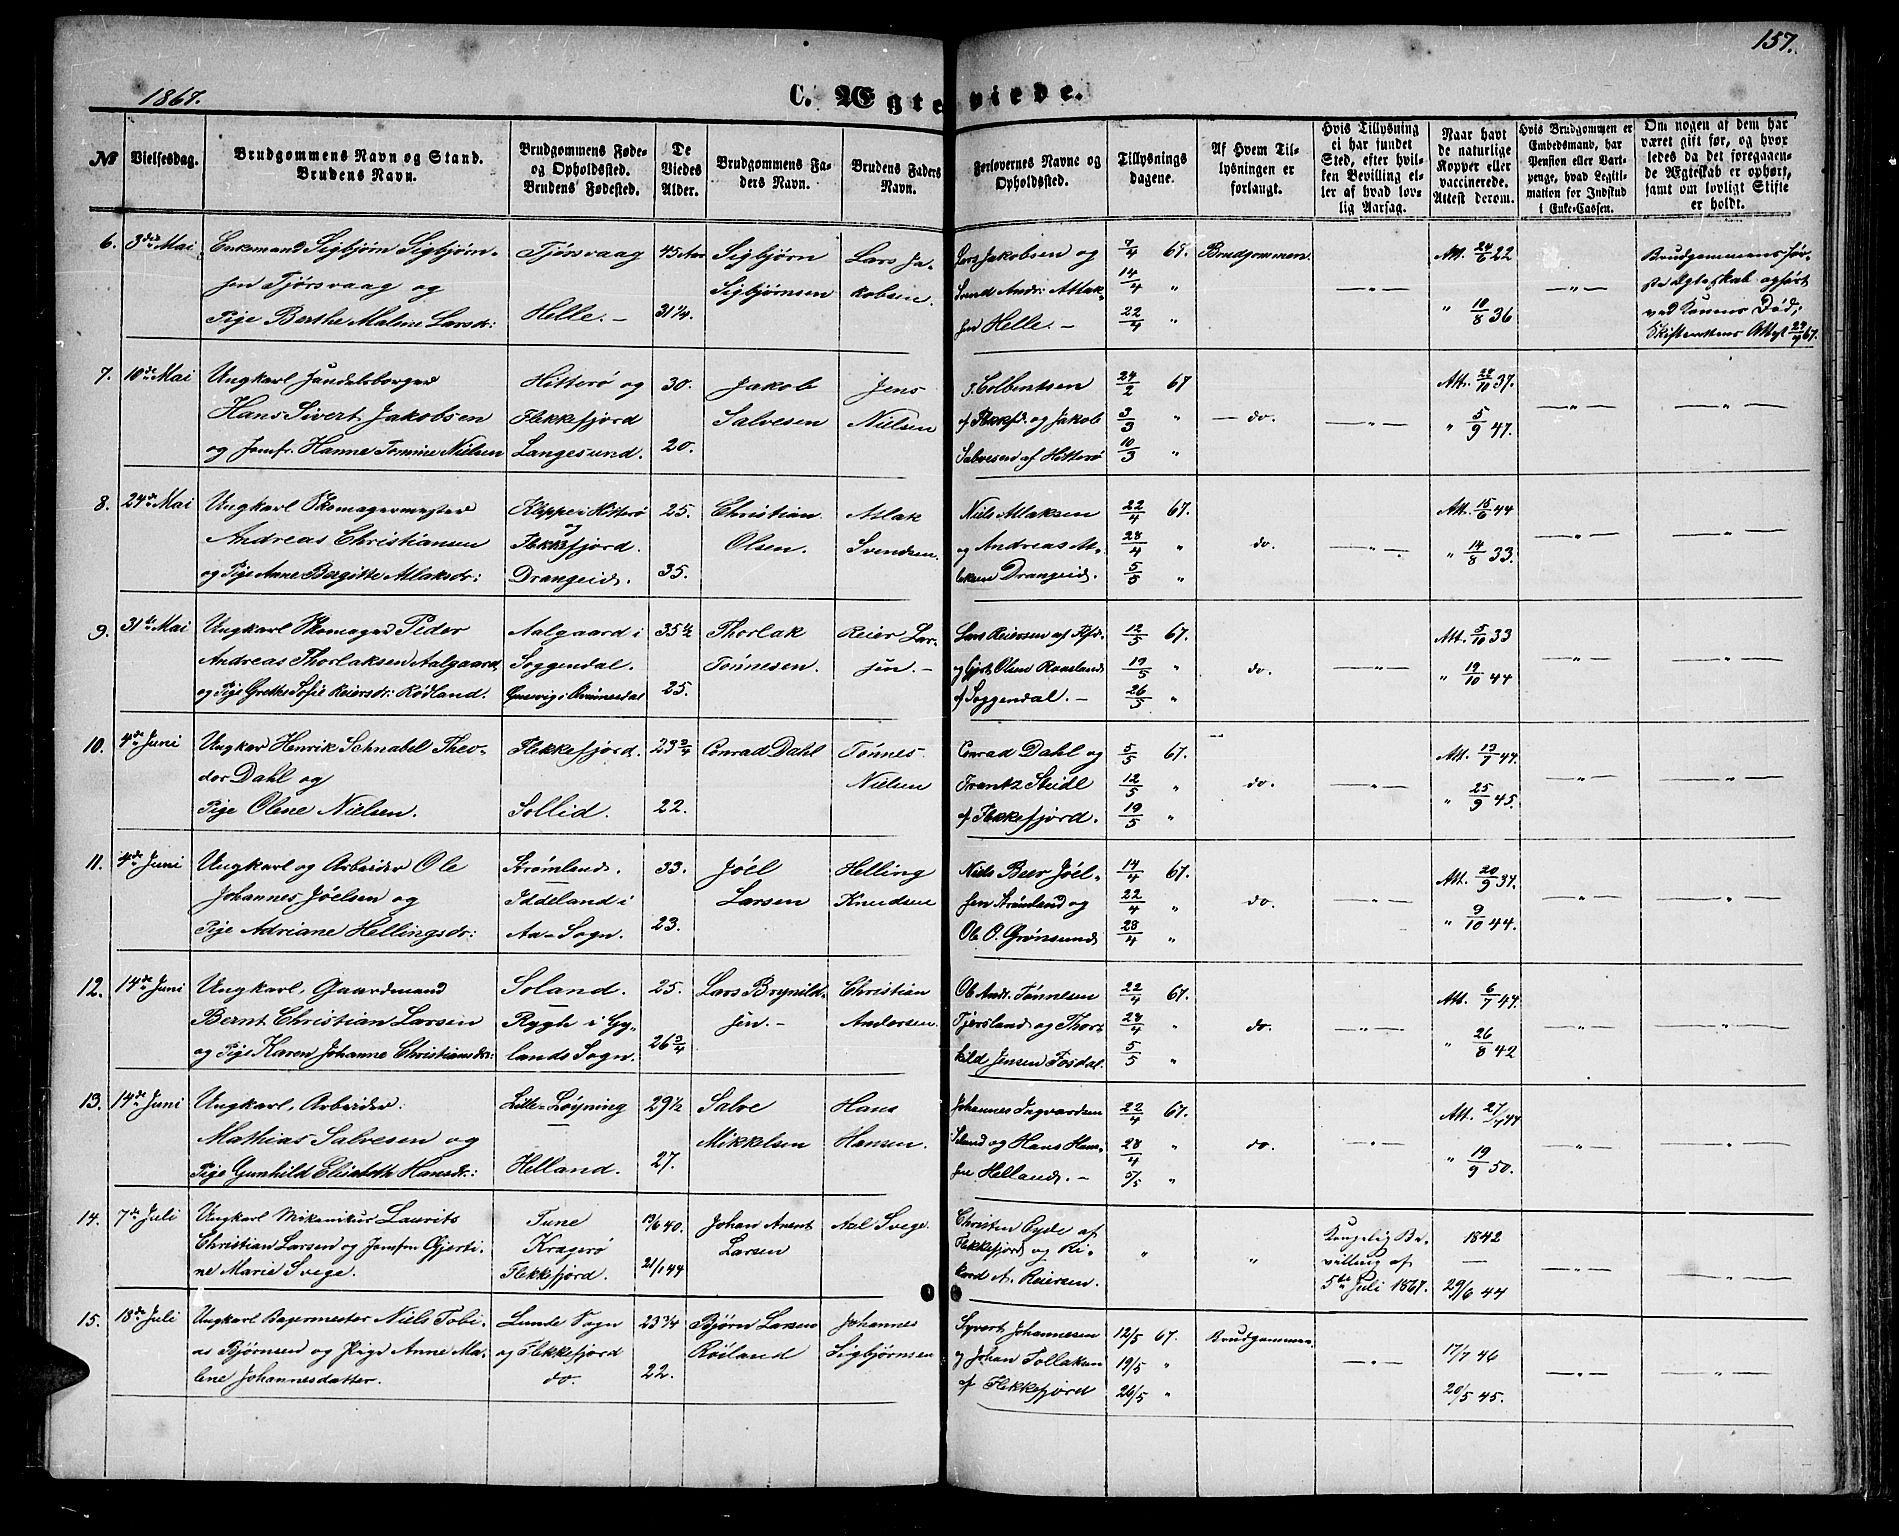 157.
1867.
C. Ægteviede.
№
Vielsesdag.
Brudgommens Navn og Stand.
Brudens Navn.
Brudgommens Føde-
og Opholdsted.
Brudens Fødested.
De
Viedes
Alder.
Brudgommens Fa-
ders Navn.
Brudens Faders
Navn.
Forlovernes Navne og
Opholdsted.
Tillysnings
dagene.
Af Hvem Til-
lysningen er
forlangt.
Hvis Tillysning
ei har fundet
Sted, efter hvil-
ken Bevilling el-
ler af hvad lov-
lig Aarsag.
Naar havt
de naturlige
Kopper eller
vaccinerede.
Attest derom.
Hvis Brudgommen er
Embedsmand, har
Pension eller Vart-
penge, hvad Legiti-
mation for Indskud
i Enke-Cassen.
Om nogen af dem har
været gift før, og hvor
ledes da det foregaaen-
de Ægteskab er ophørt,
samt om lovligt Skifte
er holdt.
6. 3de Mai Enkemand Sigbjørn Sigbjørn- Tjørsvaag 45 Aar Sigbjørn Lars Ja- Lars Jakobsen og 7/4 67. Brudgommen. Att. 24/6 22 Brudgommens før-
sen Tjørsvaag og Sigbjørnsen kobsen. Svend Andr: Atlak- 14/4 " — " — — " — ste Ægteskab ophørt
Pige Berthe Malene Larsdr: Helle. – 31 1/4. sen Helle. – 22/4 " " 10/8 36 ved Konens Død;
Skifterettens Attest 29/4 67.
7. 10de Mai Ungkarl Handelsborger Hitterø og 30. Jakob Jens T. Colbentsen 24/2 67 Att. 28/10 37.
Hans Sivert Jakobsen Flekkefjord Salvesen Nielsen af Flekkfd. og Jakob 3/3 " — do. — " — " 5/9 47. — " — — " —
og Jomfr. Hanne Tomine Nielsen Langesund. 20. Salvesen af Hitterø 10/3 "
8. 24de Mai Ungkarl Skomagermester Kloppe i Hitterø 25. Christian Atlak Niels Atlaksen 22/4 67. Att. 15/6 44
Andreas Christiansen og Flekkefjord. Olsen. Svendsen. og Andreas At- 28/4 " do. — " — " 14/8 33. — " — — " —
og Pige Anne Bergitte Atlaksdr: Drangeid. 35. laksen Drangeid. 5/5 "
9. 31te Mai Ungkarl Skomager Peder Aalgaard i 35 1/2 Thorlak Reier Lar- Lars Reiersen af Flfd. 12/5 67. Att. 5/10 33
Andreas Thorlaksen Aalgaard Soggendal. Tønnesen. sen. – og Gjert Olsen Raasland 19/5 " do. — " — " 19/10 44 — " — — " —
og Pige Grethe Sofie Reiersdr: Rødland. 25. af Soggendal. – 26/5 "
10. 4de Juni Ungkar Henrik Schnabel Theo- Flekkefjord. 23 3/4 Conrad Dahl Tønnes Conrad Dahl og 5/5 67. Att. 13/7 44.
dor Dahl og Nielsen Frantz Steidl 12/5 " do. — " — " 25/9 45. — " — — " —
Pige Olene Nielsen. Sollid. 22. af Flekkefjord. 19/5 "
11. 4de Juni Ungkarl og Arbeider Ole Strømland. 33. Jóel Helling Niels Beer Jóel- 14/4 67. Att. 20/9 37.
Johannes Jóelsen og Iddeland i Larsen Knudsen sen Strømland og 22/4 " do. — " — " 9/10 44. — " — — " —
Pige Adriane Hellingsdr: Aa-Sogn. 23. Ole O. Grønsund 28/4 "
12. 14de Juni Ungkarl, Gaardmand Soland. 25. Lars Brynild- Christian Ole Andr. Tønnesen 22/4 67. Att. 6/7 47
Bernt Christian Larsen Rygh i Gy- sen. – Andersen. Tjersland og Thor- 28/4 " do. — " — " 26/8 42 — " — — " —
og Pige Karen Johanne Christiansdr: lands Sogn. 26 3/4 kild Jensen Fosdal. 5/5 "
13. 14de Juni Ungkarl, Arbeider: Lille-Løyning 29 1/2 Salve Hans Johannes Ingvardsen 22/4 67. Att. 27/7 44
Mathias Salvesen og Mikkelsen Hansen. Seland og Hans Han- 28/4 " do. — " — — " — — " —
Pige Gunhild Elisabeth Hansdr: Helland. 27. sen Helland. – 5/5 " " 19/9 50.
14. 7de Juli Ungkarl Mekanikus Laurits Tune 13/6 40. Johan Arent Aal Svege. Christen Eyde af Kongelig Be- 1842
Christian Larsen og Jomfru Gjerti- Kragerø Larsen Flekkefjord og Ri- " " villing af — — " — — " —
ne Marie Svege. Flekkefjord. 21/1 44 kard A. Reiersen. 5te Juli 1867. 29/6 44
15. 18de Juli Ungkarl Bagermester Niels Tobi- Lunde Sogn 23 3/4 Bjørn Larsen Johannes Syvert Johannesen 12/5 67. Brudgommen
as Bjørnsen og Pige Anne Ma- og Flekkefjord Róiland Sigbjørnsen og Johan Tollaksen 19/5 " — " — 17/7 46 — " — — " —
lene Johannesdatter. do. 22. af Flekkefjord 26/5 " 20/5 45.